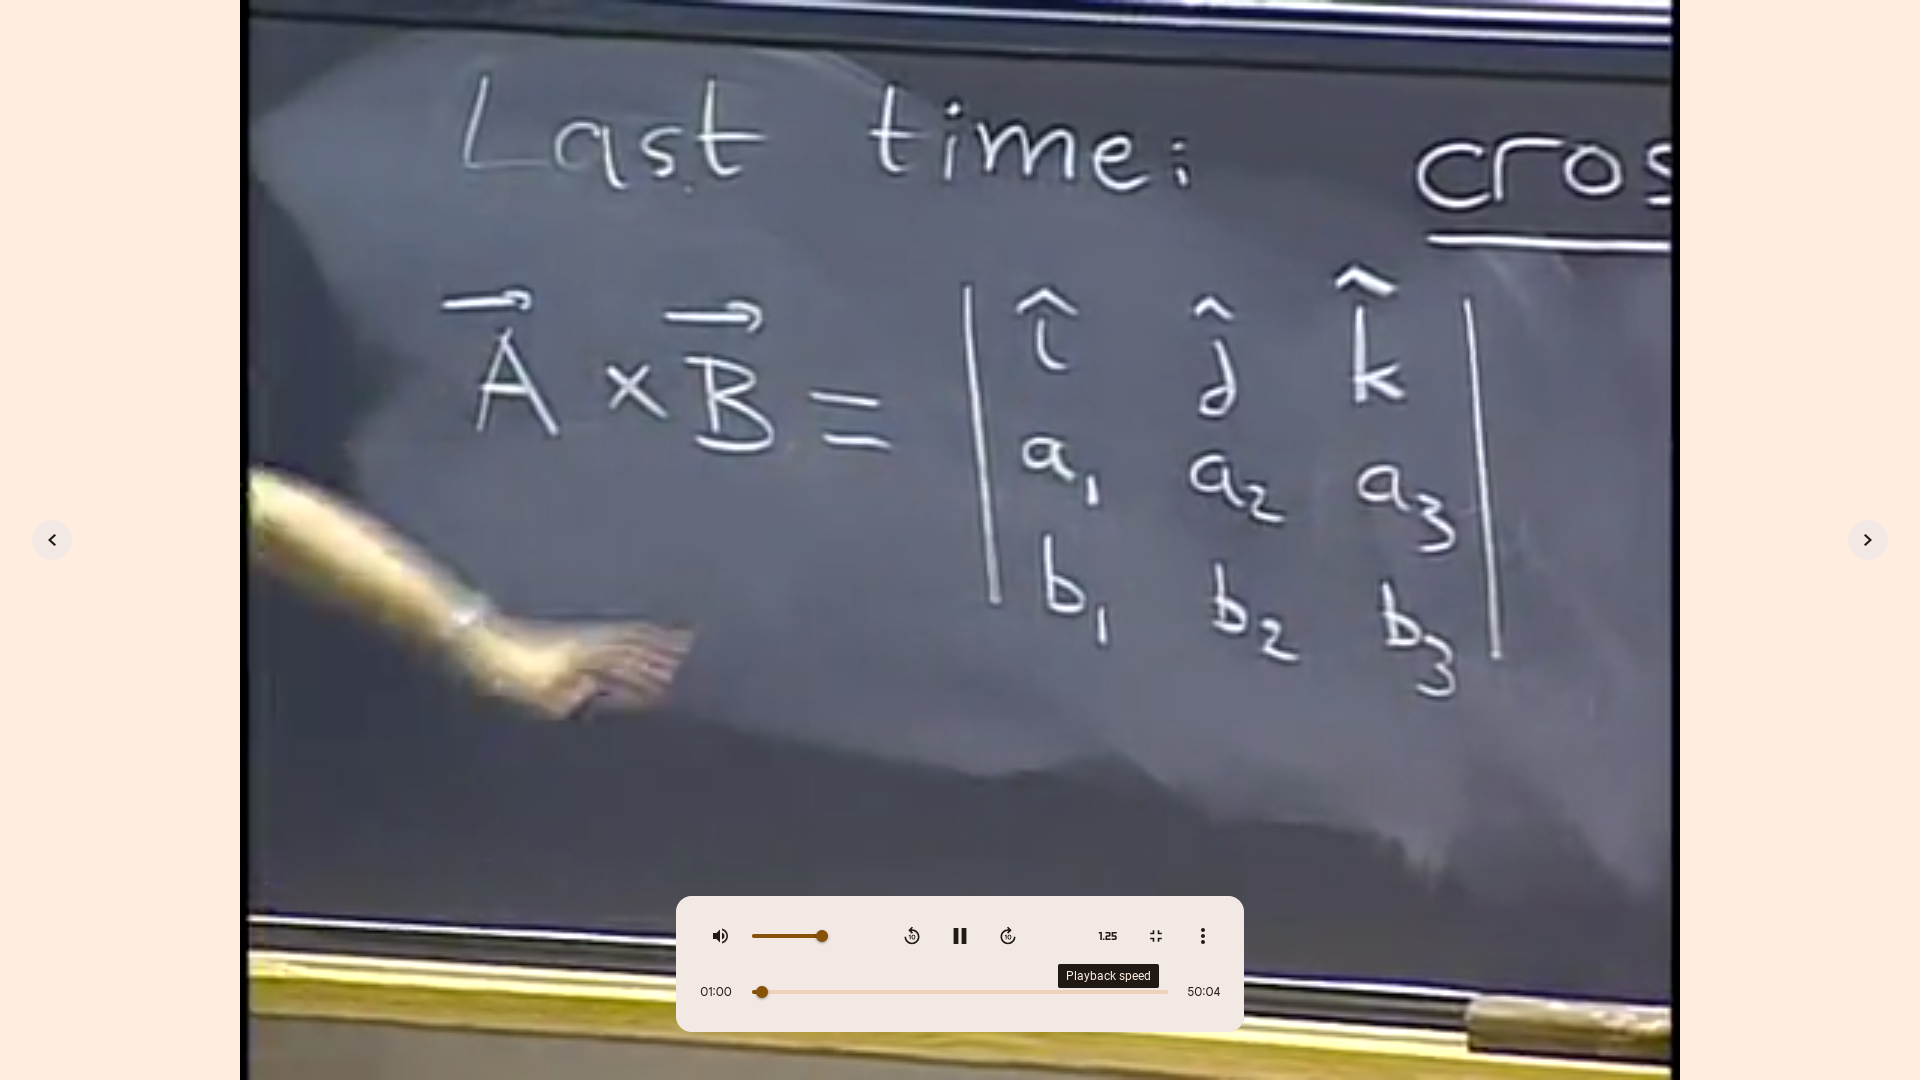 Last time: cros
A × B = | î ĵ k̂ |
a₁ a₂ a₃
b₁ b₂ b₃
10
10
1.25
Playback speed
01:00
50:04